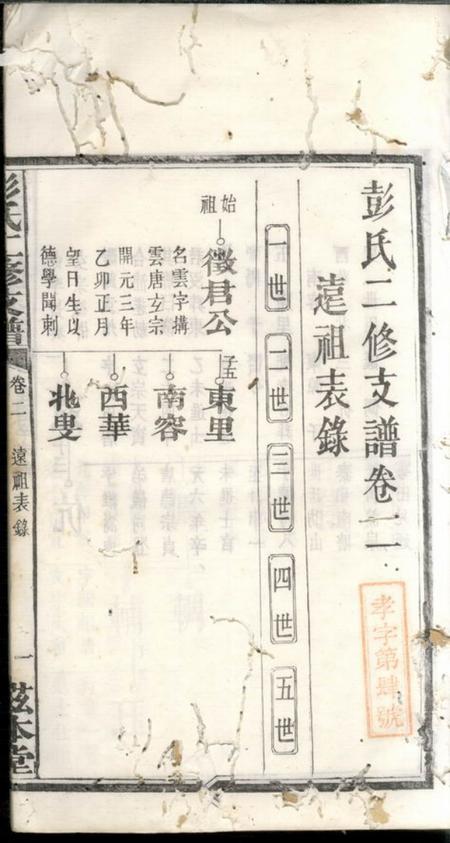 彭氏二修支譜卷二
遠祖表錄
孝字第肆號
一世
二世
三世
四世
五世
始祖
徵君公
名雲字搆
雲唐玄宗
開元三年
乙卯正月
望日生以
德學聞刺
孟
東里
南容
西華
北叟
彭氏二修支譜
卷二
遠祖表錄
一
茲本堂